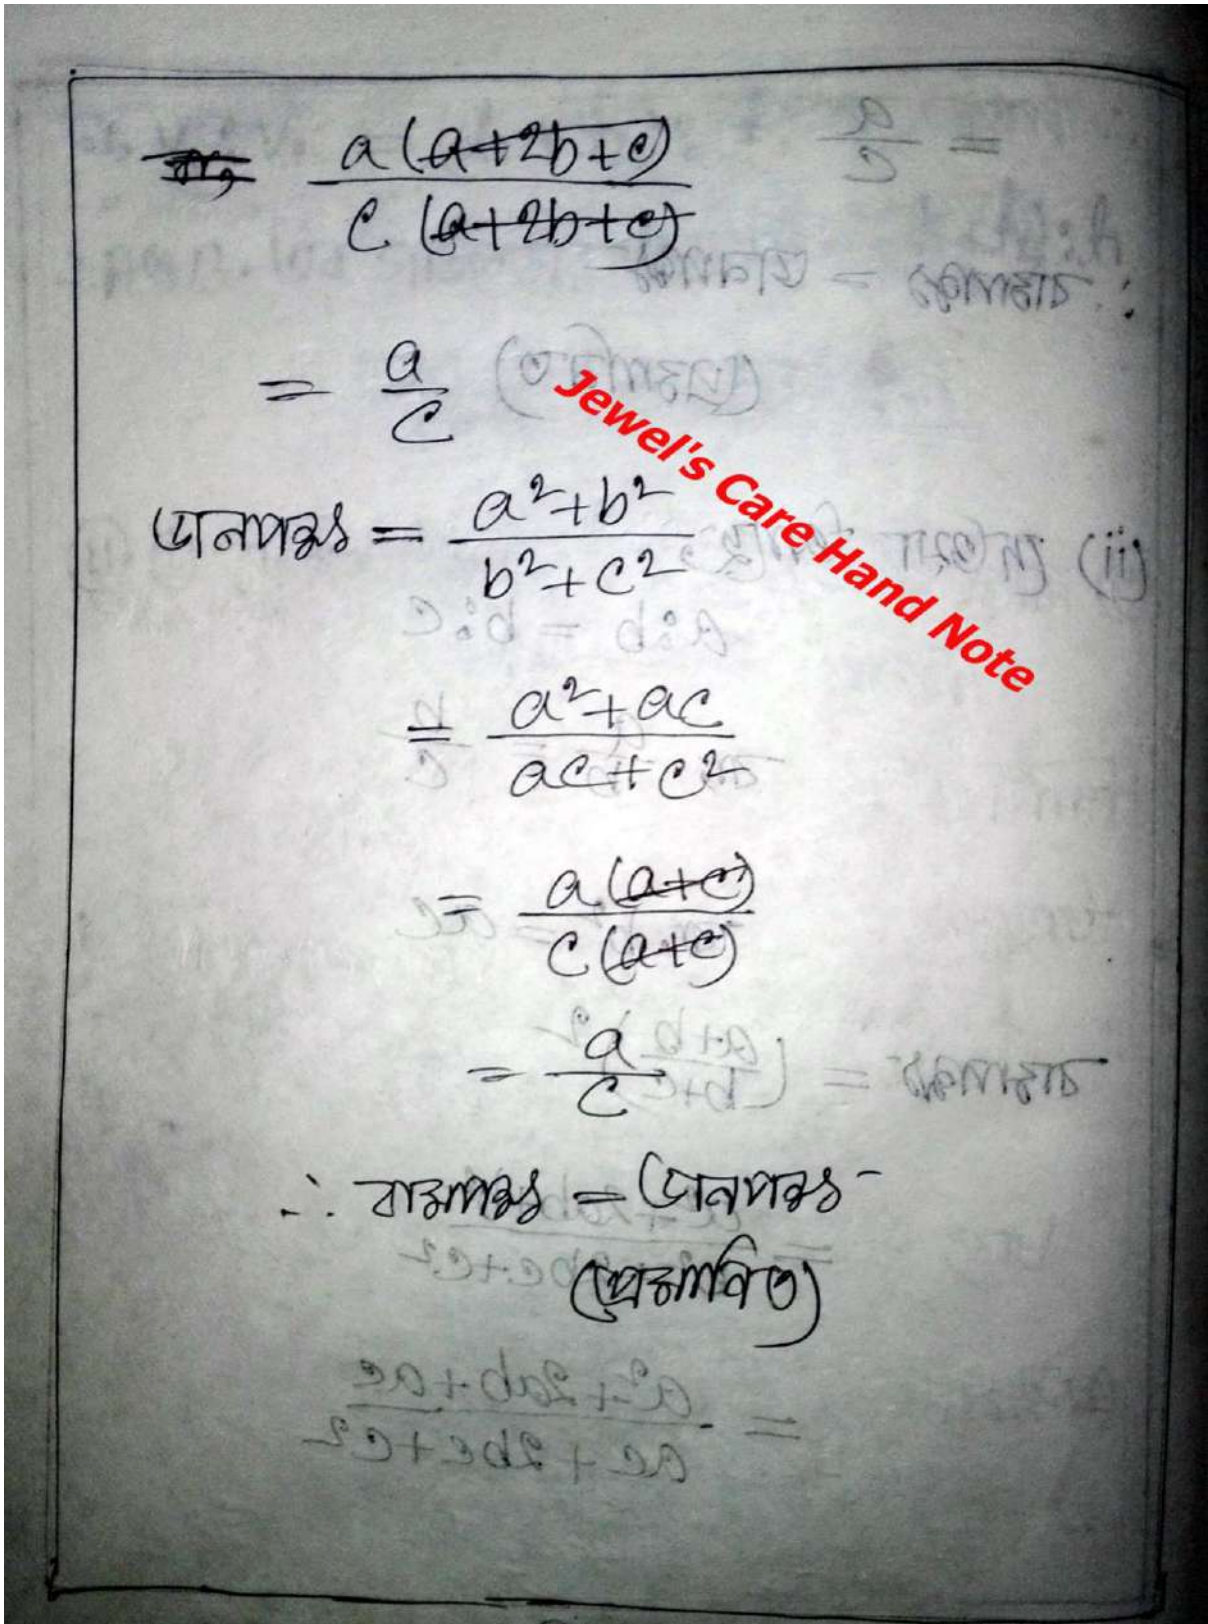 a(a+2b+c)
c(a+2b+c)
= a/c
Jewel's Care Hand Note
ডানপক্ষ = a²+b² / b²+c²
= a²+ac / ac+c²
= a(a+c) / c(a+c)
= a/c
∴ বামপক্ষ = ডানপক্ষ
(প্রমাণিত)